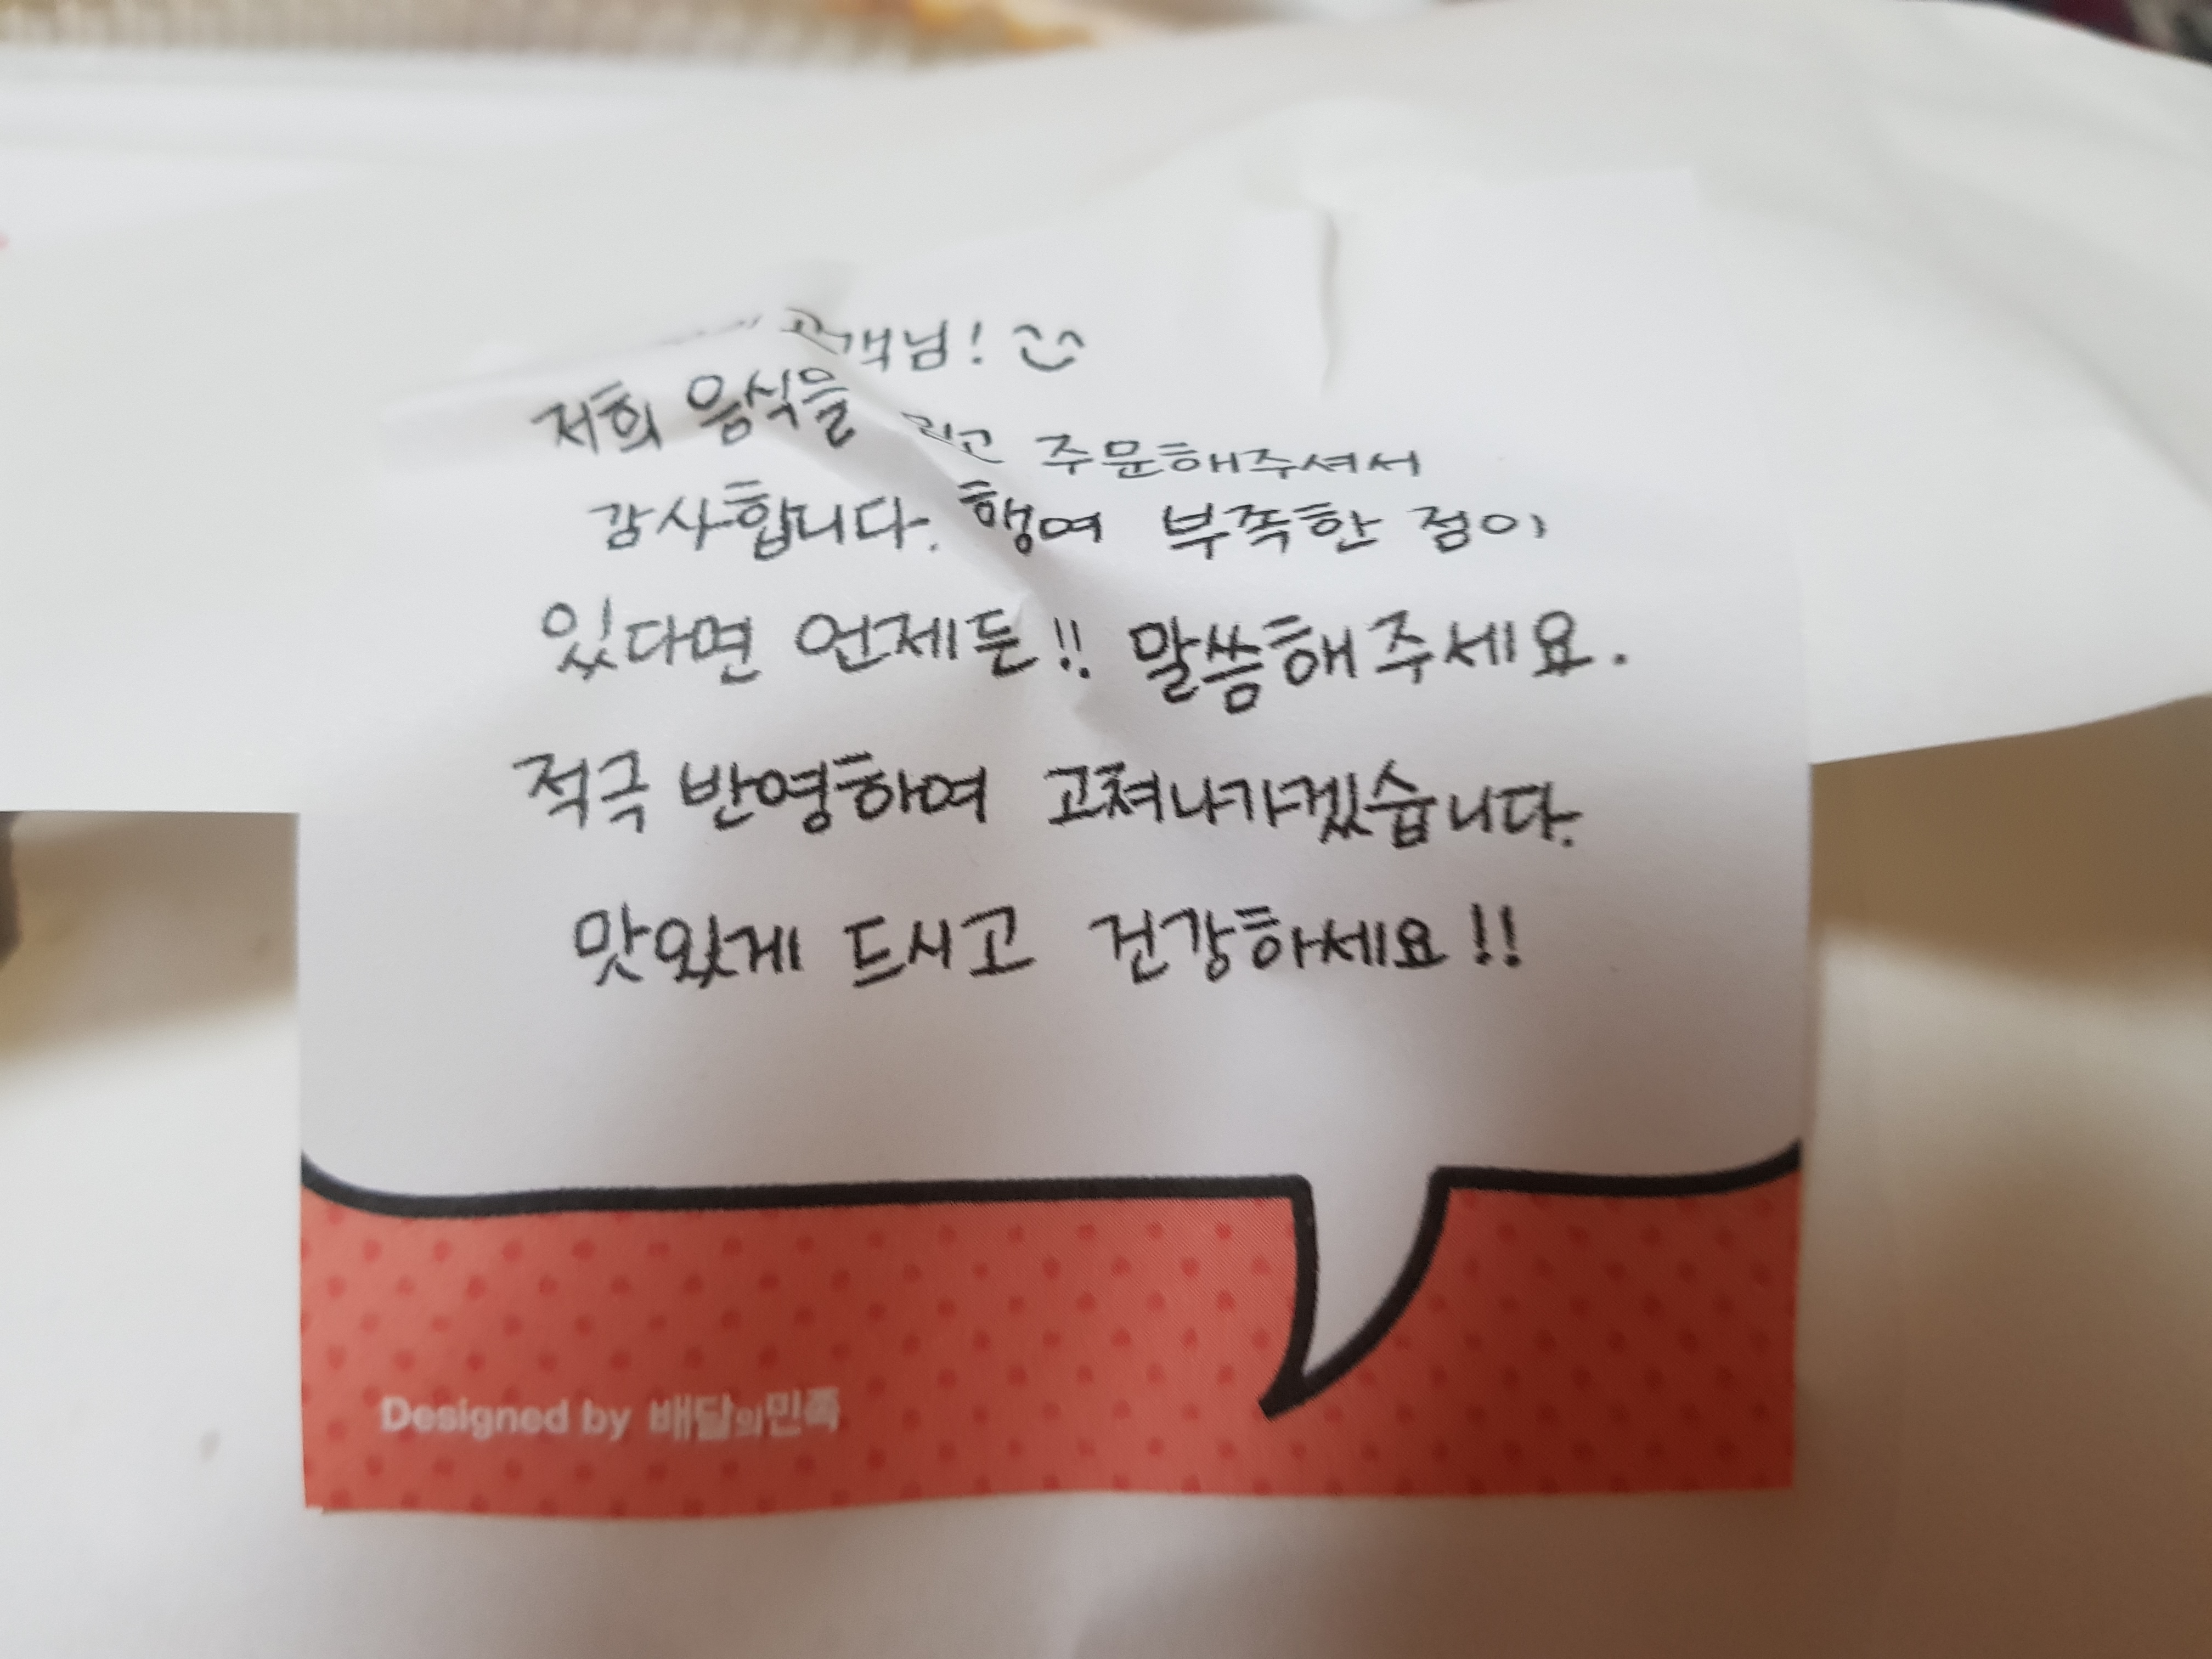 고객님!
저희 음식을 주문해주셔서
감사합니다. 행여 부족한 점이
있다면 언제든!! 말씀해주세요.
적극 반영하여 고쳐나가겠습니다.
맛있게 드시고 건강하세요!!
Designed by 배달의민족